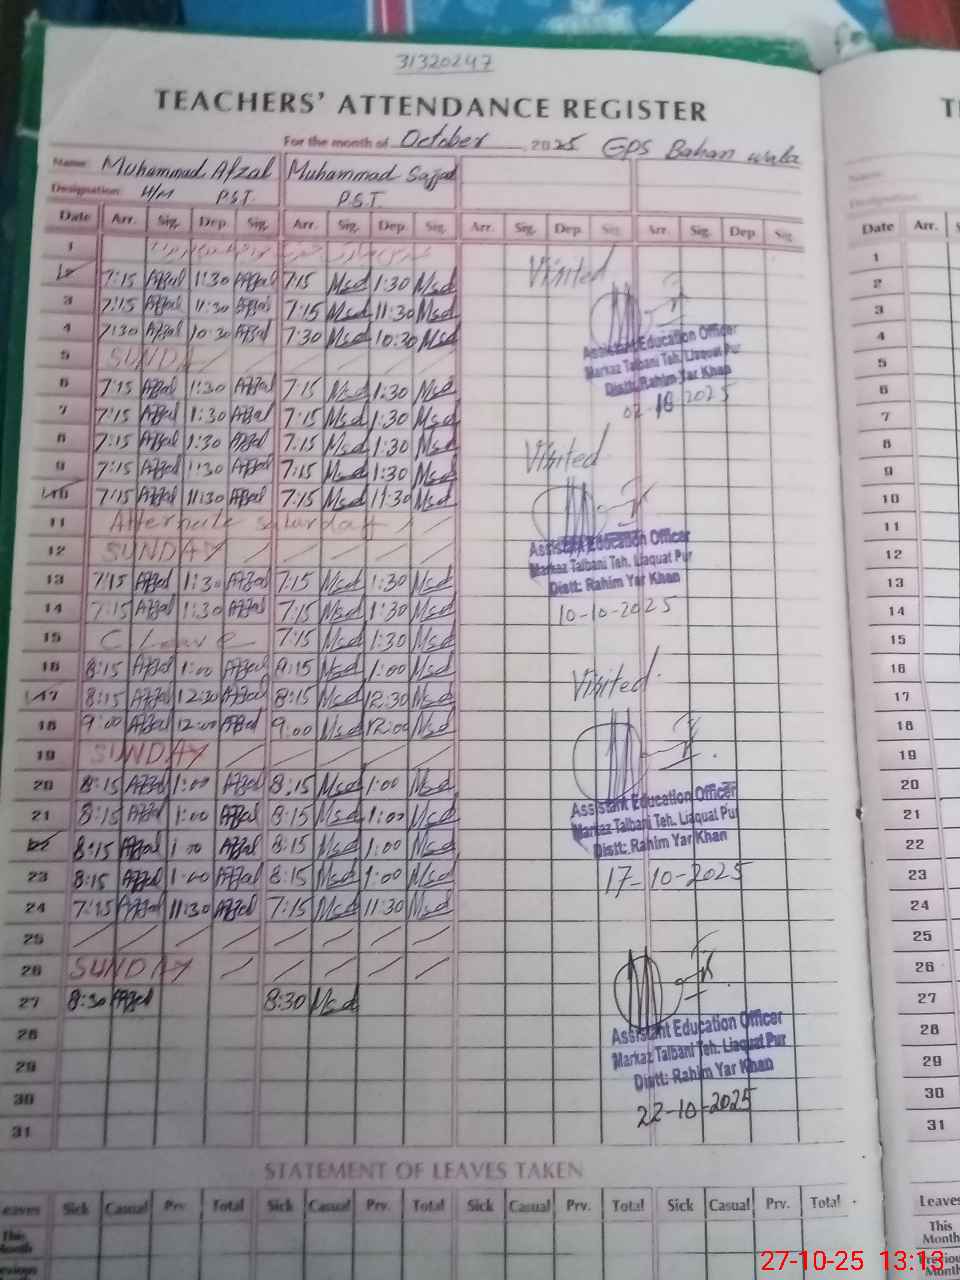 31320247
TEACHERS' ATTENDANCE REGISTER
For the month of October, 2025 GPS Bahan wala
Name: Muhammad Afzal Muhammad Sajjad
Designation: H/M P.S.T. P.S.T.
Date Arr. Sig. Dep. Sig. Arr. Sig. Dep. Sig. Arr. Sig. Dep. Sig. Arr. Sig. Dep. Sig
1
2 7:15 Afzal 1:30 Afzal 7:15 Msd 1:30 Msd
3 7:15 Afzal 11:30 Afzal 7:15 Msd 11:30 Msd
4 7:30 Afzal 10:30 Afzal 7:30 Msd 10:30 Msd
5 SUNDAY
6 7:15 Afzal 1:30 Afzal 7:15 Msd 1:30 Msd
7 7:15 Afzal 1:30 Afzal 7:15 Msd 1:30 Msd
8 7:15 Afzal 1:30 Afzal 7:15 Msd 1:30 Msd
9 7:15 Afzal 1:30 Afzal 7:15 Msd 1:30 Msd
10 7:15 Afzal 11:30 Afzal 7:15 Msd 11:30 Msd
11 Alternate Saturday
12 SUNDAY
13 7:15 Afzal 1:30 Afzal 7:15 Msd 1:30 Msd
14 7:15 Afzal 1:30 Afzal 7:15 Msd 1:30 Msd
15 C Leave 7:15 Msd 1:30 Msd
16 8:15 Afzal 1:00 Afzal 8:15 Msd 1:00 Msd
17 8:15 Afzal 12:30 Afzal 8:15 Msd 12:30 Msd
18 9:00 Afzal 12:00 Afzal 9:00 Msd 12:00 Msd
19 SUNDAY
20 8:15 Afzal 1:00 Afzal 8:15 Msd 1:00 Msd
21 8:15 Afzal 1:00 Afzal 8:15 Msd 1:00 Msd
22 8:15 Afzal 1:00 Afzal 8:15 Msd 1:00 Msd
23 8:15 Afzal 1:00 Afzal 8:15 Msd 1:00 Msd
24 7:15 Afzal 11:30 Afzal 7:15 Msd 11:30 Msd
25
26 SUNDAY
27 8:30 Afzal 8:30 Msd
28
29
30
31
Visited
Assistant Education Officer
Markaz Talbani Teh. Liaquat Pur
Distt: Rahim Yar Khan
02-10-2025
Visited
Assistant Education Officer
Markaz Talbani Teh. Liaquat Pur
Distt: Rahim Yar Khan
10-10-2025
Visited
Assistant Education Officer
Markaz Talbani Teh. Liaquat Pur
Distt: Rahim Yar Khan
17-10-2025
Assistant Education Officer
Markaz Talbani Teh. Liaquat Pur
Distt: Rahim Yar Khan
22-10-2025
STATEMENT OF LEAVES TAKEN
Leaves Sick Casual Prv. Total Sick Casual Prv. Total Sick Casual Prv. Total Sick Casual Prv. Total
This Month
Previous
Date Arr.
1
2
3
4
5
6
7
8
9
10
11
12
13
14
15
16
17
18
19
20
21
22
23
24
25
26
27
28
29
30
31
Leaves
This
Month
Previous
Month
27-10-25 13:13